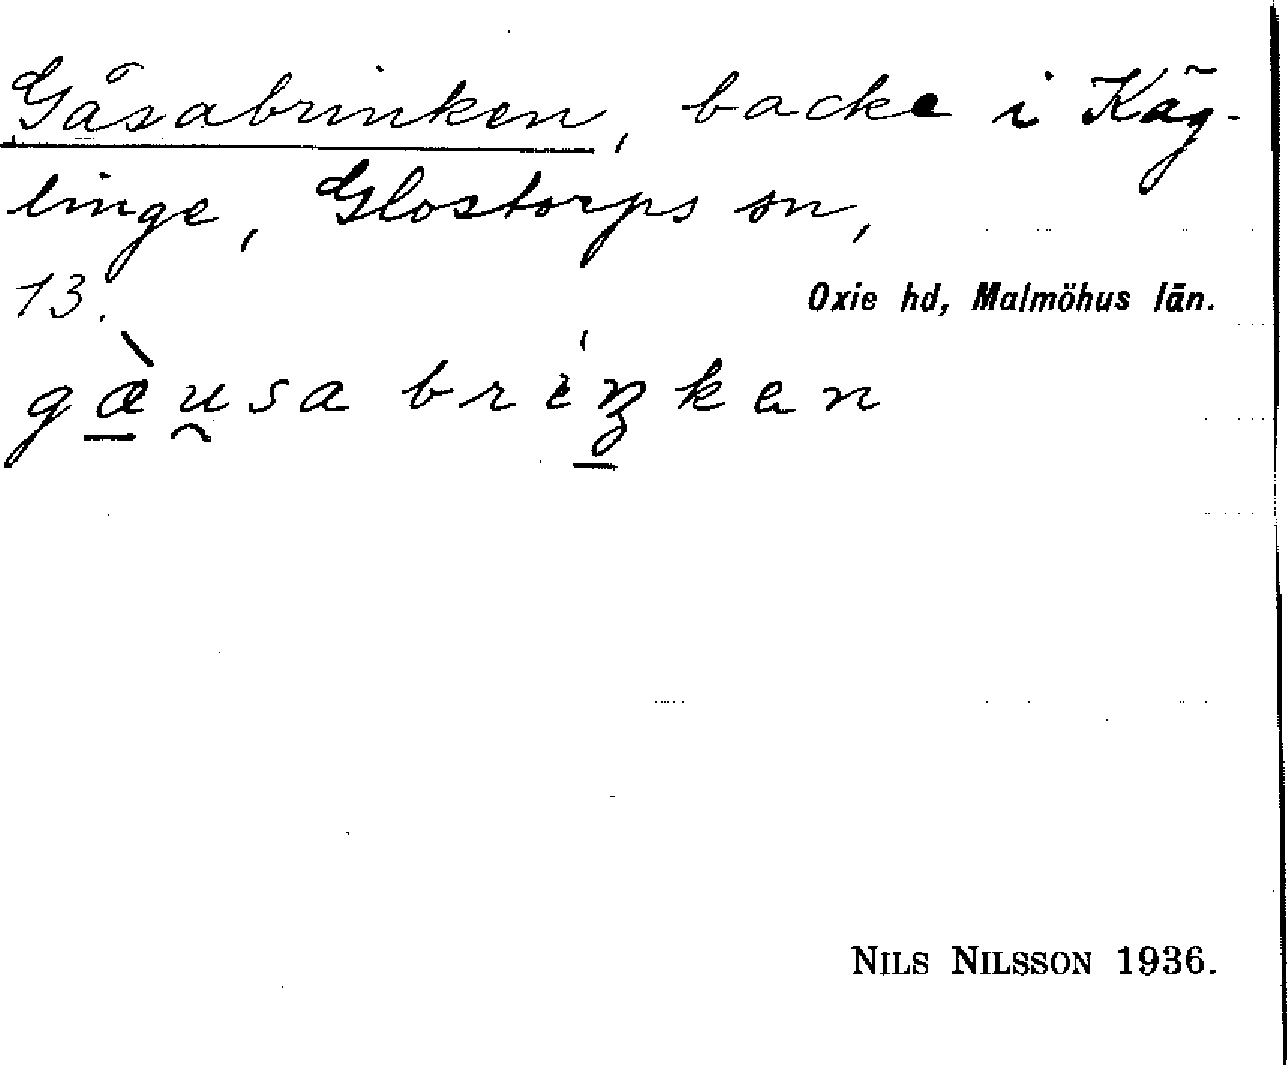 Gåsabrinken, backe i Käg-
linge, Glostorps sn,
13.
Oxie hd, Malmöhus län.
gæ̀u̯sabrıŋken
NILS NILSSON 1936.